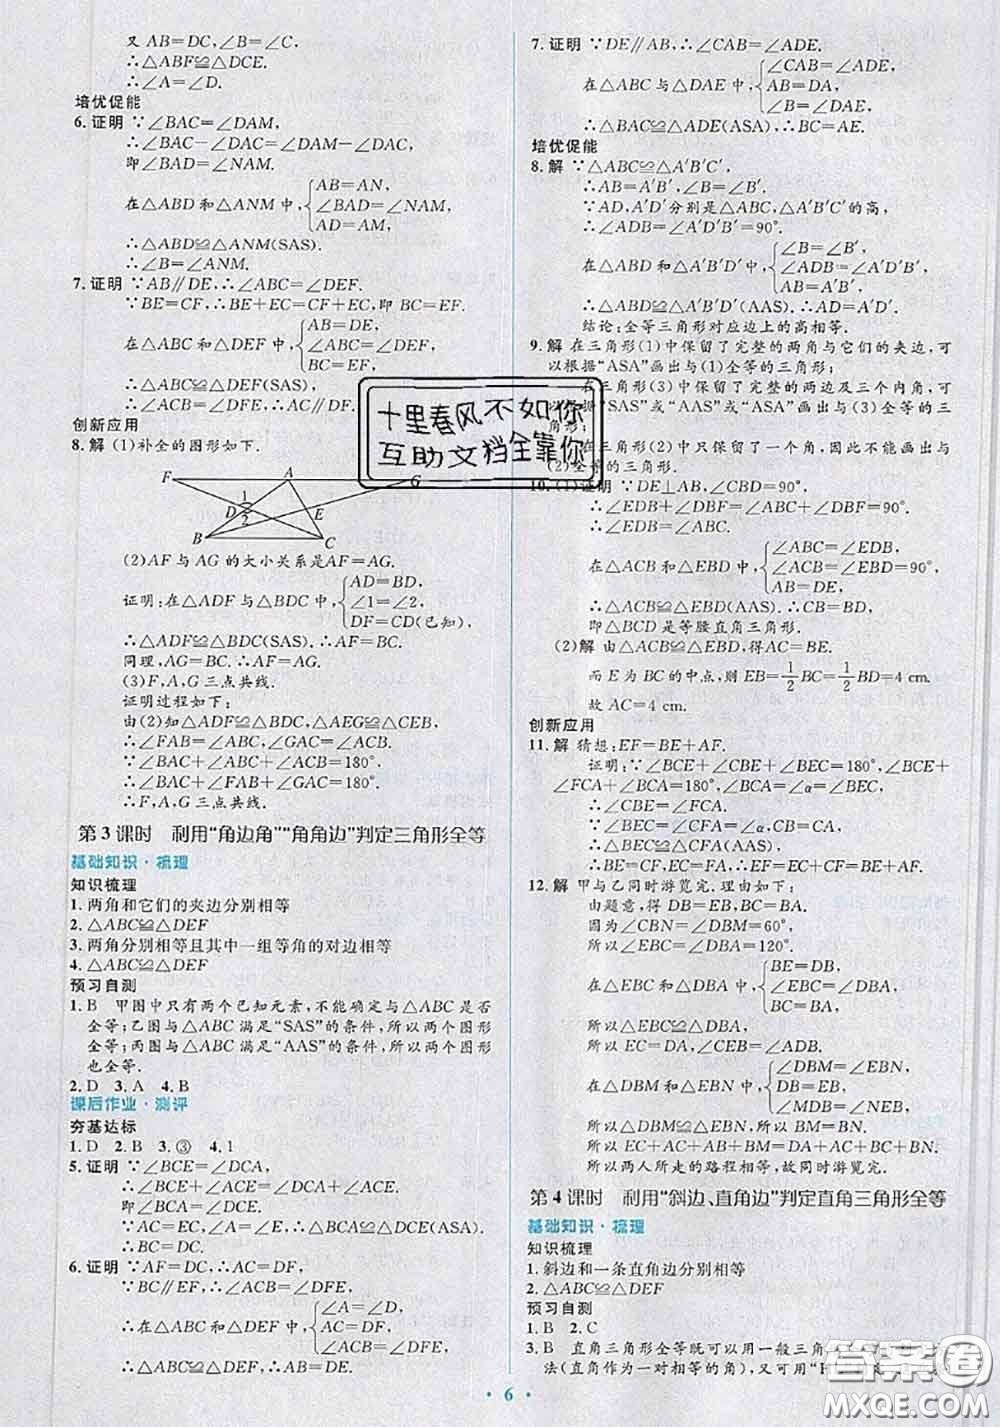 又 AB=DC,∠B=∠C,
∴△ABF≌△DCE.
∴∠A=∠D.
培优促能
6.证明 ∵∠BAC=∠DAM,
∴∠BAC-∠DAC=∠DAM-∠DAC,
即∠BAD=∠NAM.
在△ABD 和△ANM 中,{AB=AN, ∠BAD=∠NAM, AD=AM,
∴△ABD≌△ANM(SAS).
∴∠B=∠ANM.
7.证明 ∵AB∥DE,∴∠ABC=∠DEF.
∵BE=CF,∴BE+EC=CF+EC,即BC=EF.
在△ABC 和△DEF 中,{AB=DE, ∠ABC=∠DEF, BC=EF,
∴△ABC≌△DEF(SAS),
∴∠ACB=∠DFE,∴AC∥DF.
创新应用
8.解 (1)补全的图形如下.
F A G
D 1 2 E
B C
(2)AF 与 AG 的大小关系是AF=AG.
证明:在△ADF 与△BDC 中,{AD=BD, ∠1=∠2, DF=CD(已知),
∴△ADF≌△BDC(SAS).∴AF=BC.
同理,AG=BC.∴AF=AG.
(3)F,A,G 三点共线.
证明过程如下:
由(2)知△ADF≌△BDC,△AEG≌△CEB,
∴∠FAB=∠ABC,∠GAC=∠ACB.
∵∠BAC+∠ABC+∠ACB=180°,
∴∠BAC+∠FAB+∠GAC=180°.
∴F,A,G三点共线.
第 3 课时 利用“角边角”“角角边”判定三角形全等
基础知识·梳理
知识梳理
1.两角和它们的夹边分别相等
2.△ABC≌△DEF
3.两角分别相等且其中一组等角的对边相等
4.△ABC≌△DEF
预习自测
1.B 甲图中只有两个已知元素,不能确定与△ABC 是否
全等;乙图与△ABC 满足“SAS”的条件,所以两个图形
全等;丙图与△ABC 满足“AAS”的条件,所以两个图形
也全等.
2.D 3.A 4.B
课后作业·测评
夯基达标
1.D 2.B 3.③ 4.1
5.证明 ∵∠BCE=∠DCA,
∴∠BCE+∠ACE=∠DCA+∠ACE,
即∠BCA=∠DCE.
∵AC=EC,∠A=∠E,∴△BCA≌△DCE(ASA).
∴BC=DC.
6.证明 ∵AF=DC,∴AC=DF.
∵BC∥EF,∴∠ACB=∠DFE,
∴在△ABC 和△DEF 中,{∠A=∠D, AC=DF, ∠ACB=∠DFE,
∴△ABC≌△DEF(ASA),∴AB=DE.
7.证明 ∵DE∥AB,∴∠CAB=∠ADE.
在△ABC 与△DAE 中,{∠CAB=∠ADE, AB=DA, ∠B=∠DAE,
∴△ABC≌△DAE(ASA),∴BC=AE.
培优促能
8.解 ∵△ABC≌△A′B′C′,
∴AB=A′B′,∠B=∠B′.
∵AD,A′D′分别是△ABC,△A′B′C′的高,
∴∠ADB=∠A′D′B′=90°.
在△ABD 和△A′B′D′中,{∠B=∠B′, ∠ADB=∠A′D′B′, AB=A′B′,
∴△ABD≌△A′B′D′(AAS),∴AD=A′D′.
结论:全等三角形对应边上的高相等.
9.解 在三角形(1)中保留了完整的两角与它们的夹边,可
以根据“ASA”画出与(1)全等的三角形;
在三角形(3)中保留了完整的两边及三个内角,可
“SAS”或“AAS”或“ASA”画出与(3)全等的三
角形;
在三角形(2)中只保留了一个角,因此不能画出与
(2)全等的三角形.
10.(1)证明 ∵DE⊥AB,∠CBD=90°.
∴∠EDB+∠DBF=∠ABC+∠DBF=90°.
∴∠EDB=∠ABC.
在△ACB 和△EBD 中,{∠ABC=∠EDB, ∠ACB=∠EBD=90°, AB=ED,
∴△ACB≌△EBD(AAS).∴BC=DB,
即△BCD是等腰直角三角形.
(2)解 由△ACB≌△EBD,得AC=BE.
而E为BC的中点,则EB=1/2BC=1/2BD=4 cm.
故 AC=4 cm.
创新应用
11.解 猜想:EF=BE+AF.
证明:∵∠BCE+∠CBE+∠BEC=180°,∠BCE
+∠FCA+∠BCA=180°,∠BCA=∠α=∠BEC,
∴∠CBE=∠FCA.
∵BC=CA,∠BEC=∠CFA,∴△BEC≌△CFA(AAS).
∴BE=FC,EC=FA,∴EF=EC+CF=FA+BE.
12.解 甲与乙同时游览完.理由如下:
由题意,得 DB=EB,AB=BC,
因为∠CBN=∠DBM=60°,
所以∠EBC=∠DBA=120°.
在△EBC 和△DBA 中,{BE=DB, ∠EBC=∠DBA, BC=BA,
所以△EBC≌△DBA(SAS).
所以 EC=DA,∠CEB=∠ADB.
在△DBM 和△EBN 中,{∠DBM=∠EBN, DB=EB, ∠MDB=∠NEB,
所以△DBM≌△EBN,所以 BM=BN.
所以 EC+AC+AB+BM=DA+AC+BC+BN,
所以两人所走的路程相等,故同时游览完.
第 4 课时 利用“斜边、直角边”判定直角三角形全等
基础知识·梳理
知识梳理
1.斜边和一条直角边分别相等
2.△ABC≌△DEF
预习自测
1.B 2.C
3.B 直角三角形全等既可以用一般三角
法(直角作为一对相等的角),又可用“H
十里春风不如你
互助文档全靠你
答案圈
MXQE.COM
· 6 ·